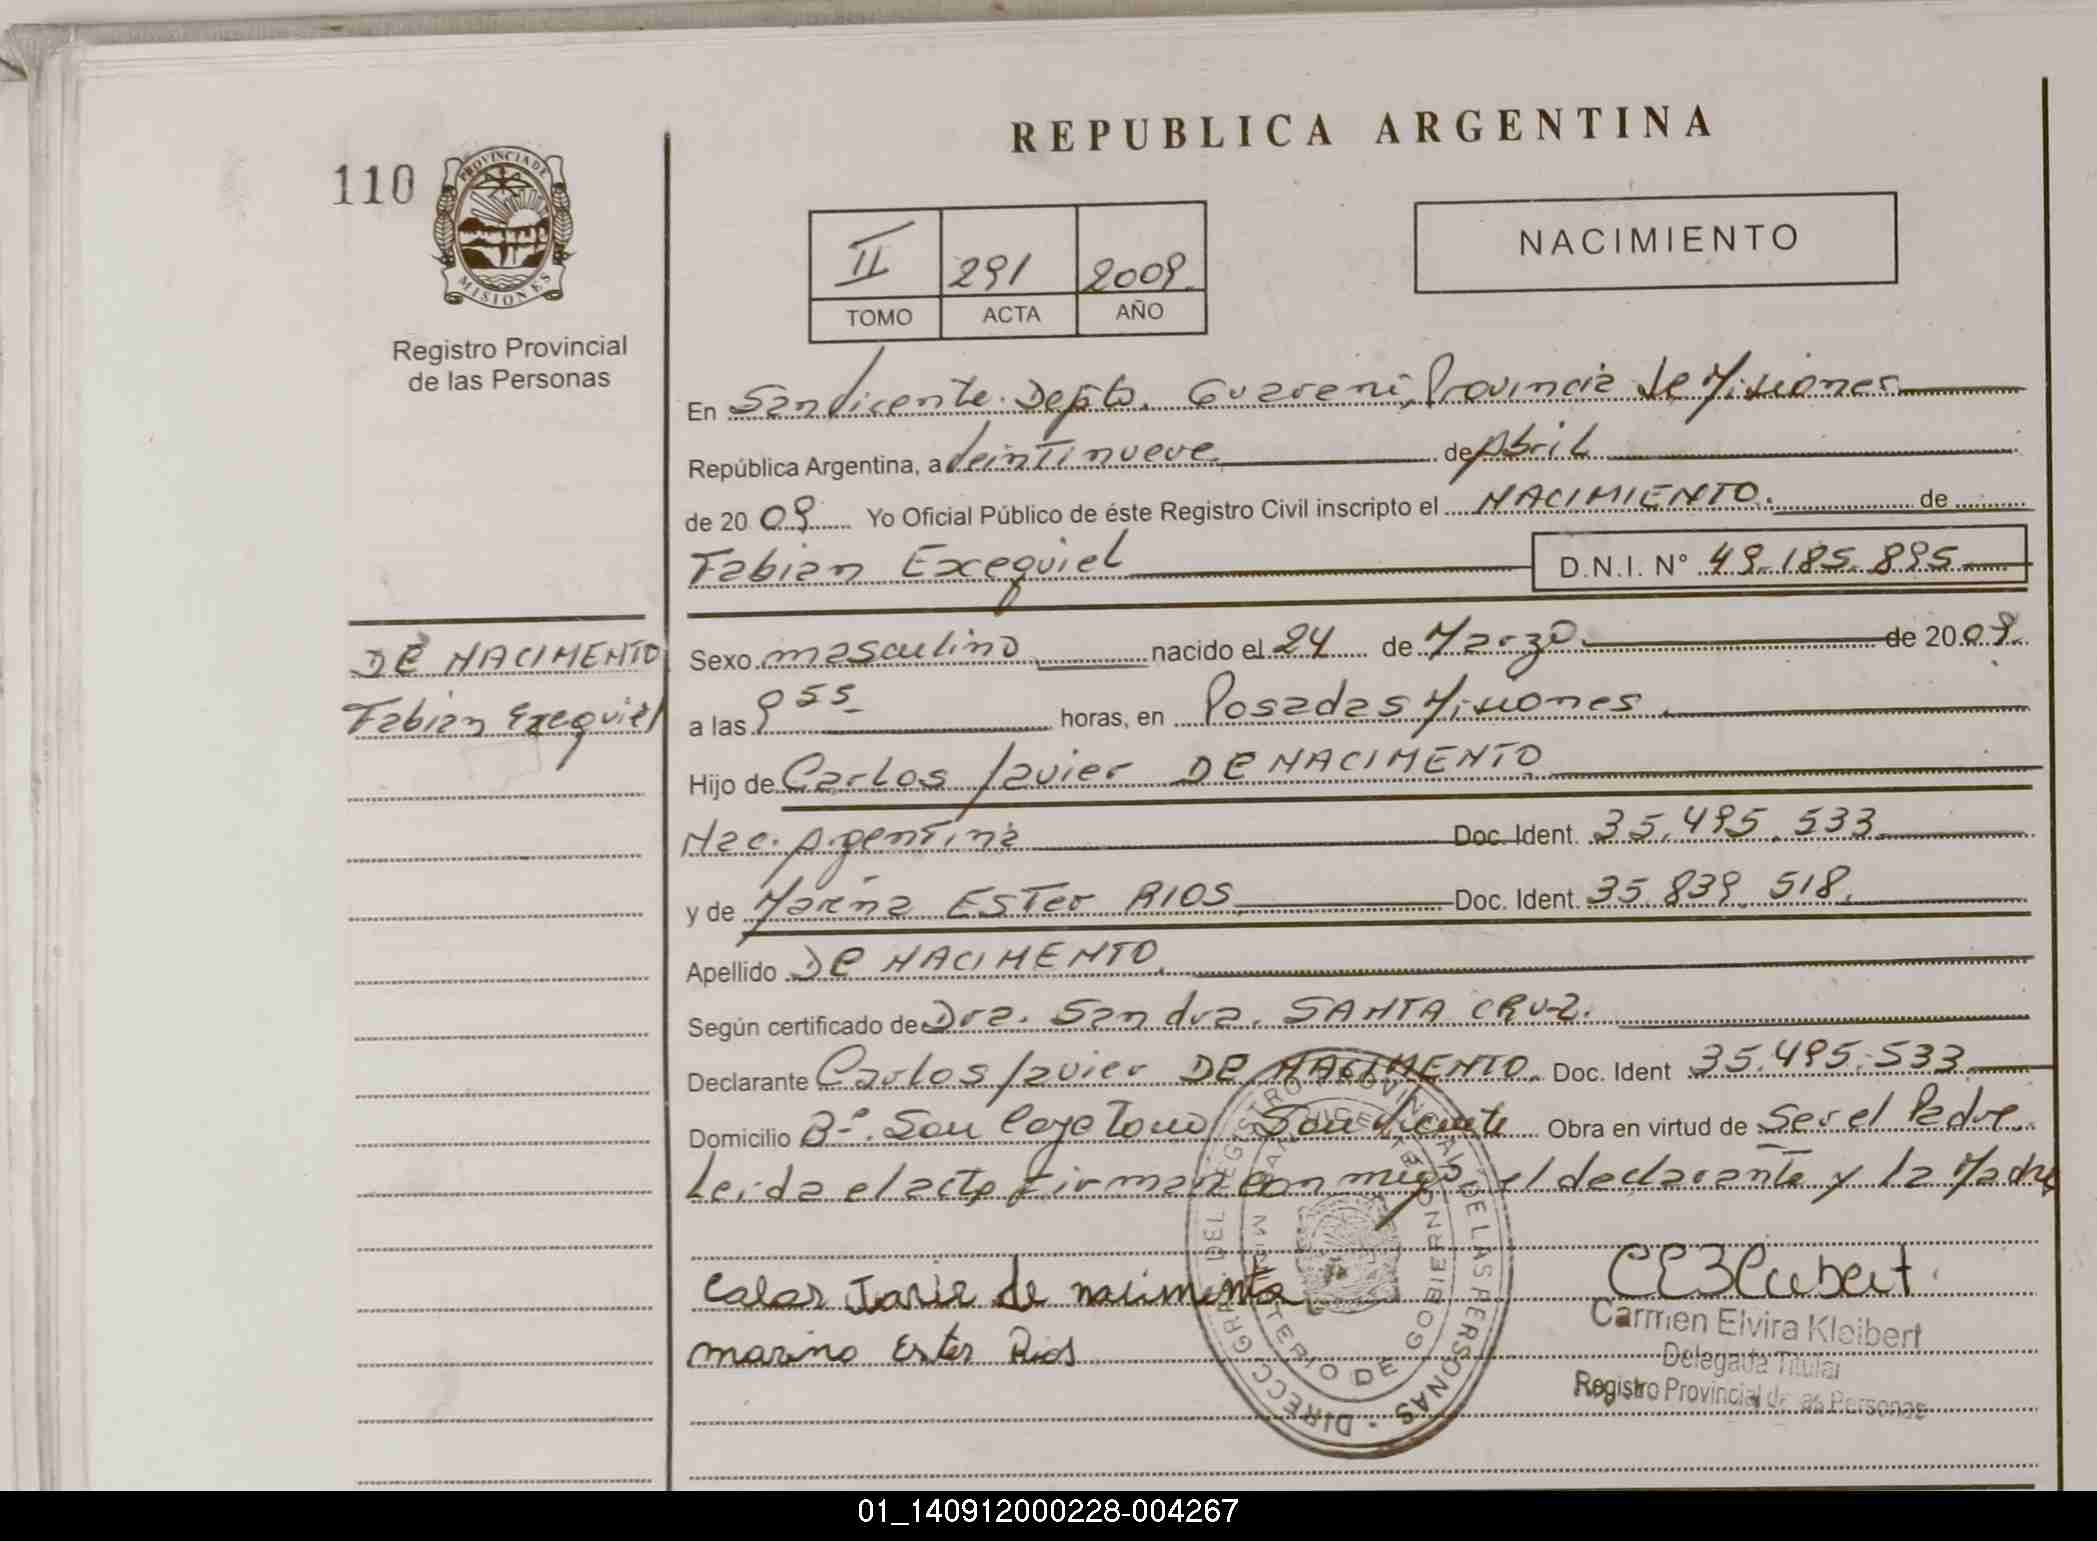 REPUBLICA ARGENTINA
110
PROVINCIA DE
MISIONES
Registro Provincial
de las Personas
II 291 2009.
TOMO ACTA AÑO
NACIMIENTO
En San Vicente. Depto. Guarani, Provincia de Misiones
República Argentina, a Veintinueve de Abril
de 20 09 Yo Oficial Público de éste Registro Civil inscripto el NACIMIENTO. de
Fabian Exequiel D.N.I. N° 49.185.895
DE NACIMENTO
Fabian Exequiel
Sexo masculino nacido el 24 de Marzo de 2009.
a las 9 55 horas, en Posadas Misiones.
Hijo de Carlos Javier DE NACIMENTO
Nac. Argentina Doc. Ident. 35.495.533
y de Marina ESTer RIOS Doc. Ident. 35.839.518.
Apellido De NACIMENTO.
Según certificado de Dra. Sandra. SANTA CRUZ.
Declarante Carlos Javier DE NACIMENTO. Doc. Ident 35.495.533
Domicilio Bº. San Cayetano San Vicente Obra en virtud de Ser el Padre.
Leida el acta firman conmigo el declarante y la Madre
Calos Javie de nacimento
marina Ester Rios
Carmen Elvira Kleibert
Delegada Titular
Registro Provincial de las Personas
DIRECC GRAL DEL REGISTRO PROVINCIAL DE LAS PERSONAS
MINISTERIO DE GOBIERNO
SAN VICENTE
01_140912000228-004267